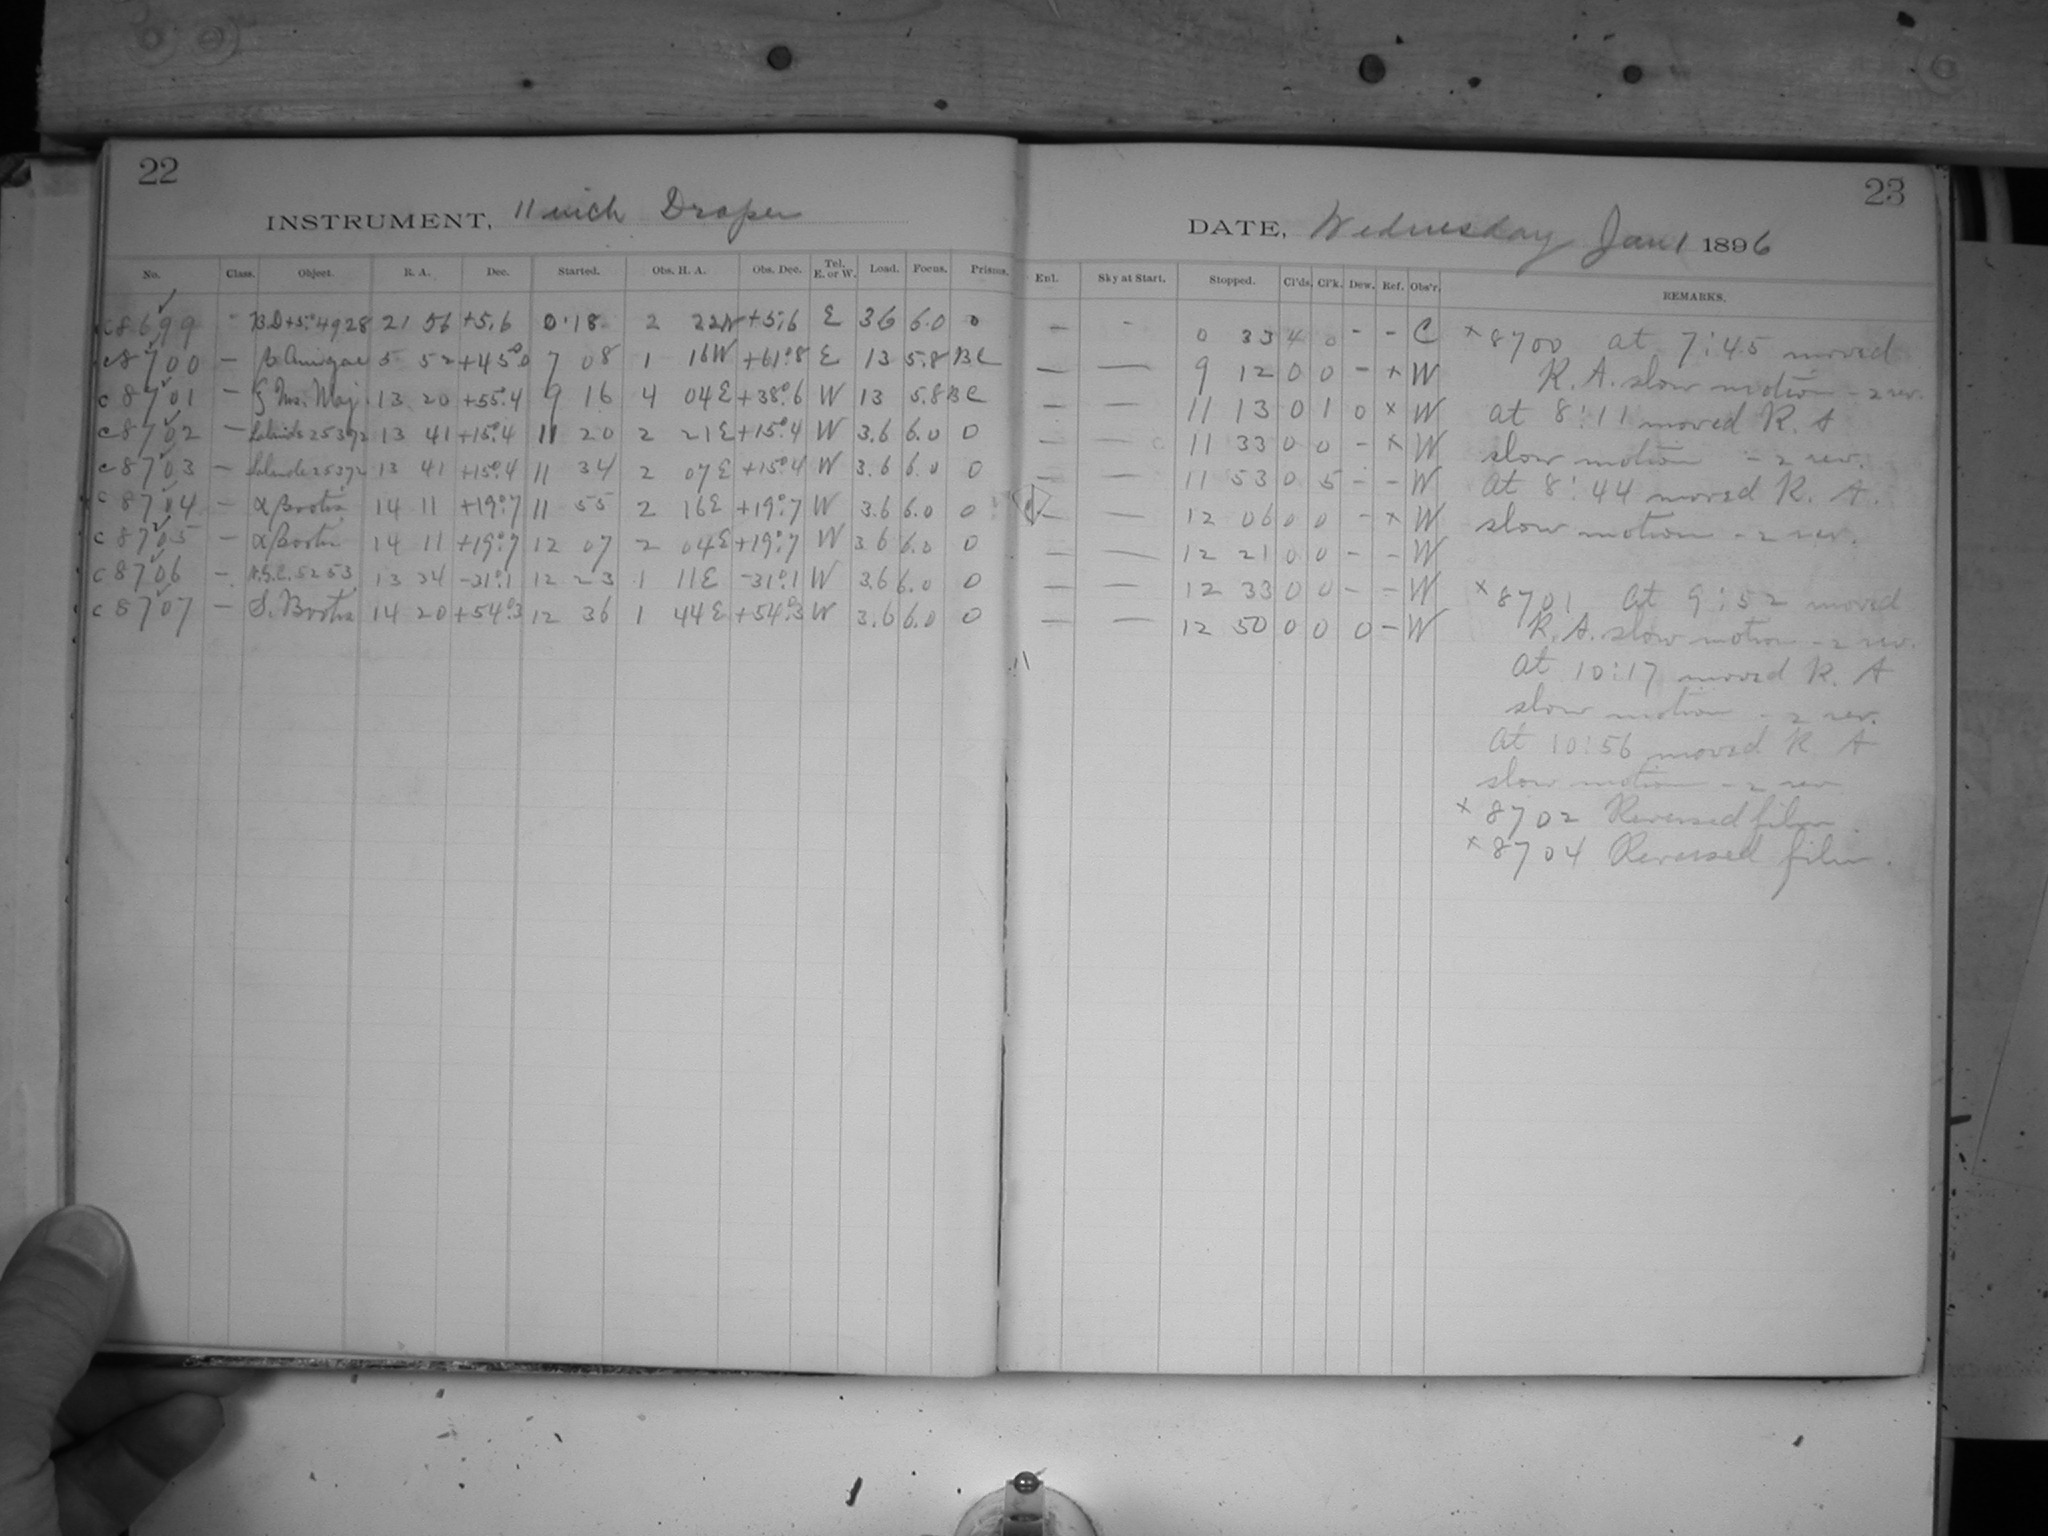 22
INSTRUMENT, 11 inch Draper
No. Class. Object. R. A. Dec. Started. Obs. H. A. Obs. Dec. Tel. E. or W. Load. Focus. Prisms.
c8699 - B.D+5°4928 21 56 +5.6 0 18 2 22W +5.6 E 36 6.0 0
c8700 — β Aurigae 5 52 +45°0 7 08 1 16W +61°8 E 13 5.8 BC
c8701 — ζ Urs. Maj. 13 20 +55°4 9 16 4 04E +38°6 W 13 5.8 BC
c8702 — Lalande 25372 13 41 +15°4 11 20 2 21E +15°4 W 3.6 6.0 0
c8703 — Lalande 25372 13 41 +15°4 11 34 2 07E +15°4 W 3.6 6.0 0
c8704 — α Bootis 14 11 +19°7 11 55 2 16E +19°7 W 3.6 6.0 0
c8705 — α Bootis 14 11 +19°7 12 07 2 04E +19°7 W 3.6 6.0 0
c8706 — N.G.C. 5253 13 34 -31°1 12 23 1 11E -31°1 W 3.6 6.0 0
c8707 — S. Bootis 14 20 +54°3 12 36 1 44E +54°3 W 3.6 6.0 0
23
DATE, Wednesday Jan 1 1896
Enl. Sky at Start. Stopped. Cl'ds. Cl'k. Dew. Ref. Obs'r. REMARKS.
— - 0 33 4 0 - - C
— — 9 12 0 0 - × W
— — 11 13 0 1 0 × W
— — 11 33 0 0 - × W
— — 11 53 0 5 - - W
— — 12 06 0 0 - × W
— — 12 21 0 0 - - W
— — 12 33 0 0 - - W
— — 12 50 0 0 0 - W
×8700 at 7:45 moved
R. A. slow motion - 2 rev.
at 8:11 moved R. A
slow motion - 2 rev.
at 8:44 moved R. A.
slow motion - 2 rev.
×8701 at 9:52 moved
R. A. slow motion - 2 rev.
at 10:17 moved R. A
slow motion - 2 rev.
at 10:56 moved R A
slow motion - 2 rev
×8702 Reversed film.
×8704 Reversed film.